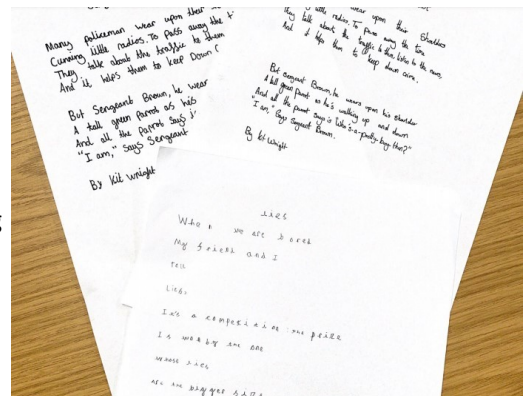 Many policemen wear upon their
Cunning little radios. To pass away the
They talk about the traffic to them
And it helps them to keep Down
But Sergeant Brown, he wear
A tall green parrot as he's
And all the parrot says
"I am," says Sergeant
By Kit Wright
wear upon their Shoulders
little radios. To pass away the time
They talk about the traffic to them, listen to the news,
And it helps them to keep down crime.
But Sergeant Brown, he wears upon his Shoulder
A tall green parrot as he's walking up and down
And all the parrot says is "Who's-a-pretty-boy-then?"
"I am," Says Sergeant Brown.
By Kit Wright
Lies
When we are bored
My friend and I
Tell
Lies.
It's a competition: the prize
Is won by the one
Whose lies
Are the bigger size